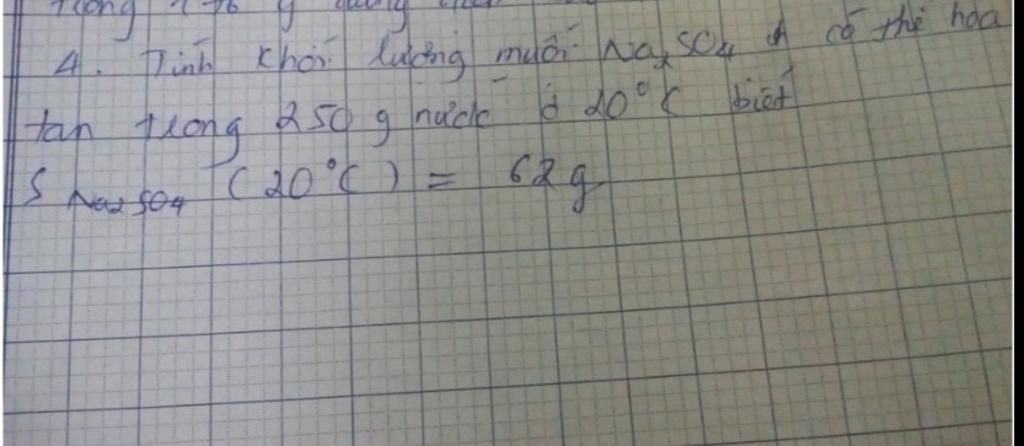 4. Tính khối lượng muối Na2SO4 có thể hòa
tan trong 250 g nước ở 20°C biết
S Na2SO4 (20°C) = 62 g